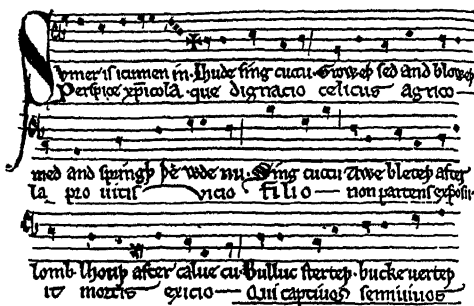 Sumer is icumen in. Lhude sing cuccu. Groweþ sed and bloweþ
Perspice xp̄icola. que dignacio celicus agrico
med and springþ þe wde nu. Sing cuccu Awe bleteþ after
la pro uitis vicio filio non parcens exposu
lomb lhouþ after calue cu. Bulluc sterteþ. bucke uerteþ
it mortis exicio Qui captiuos semiuiuos